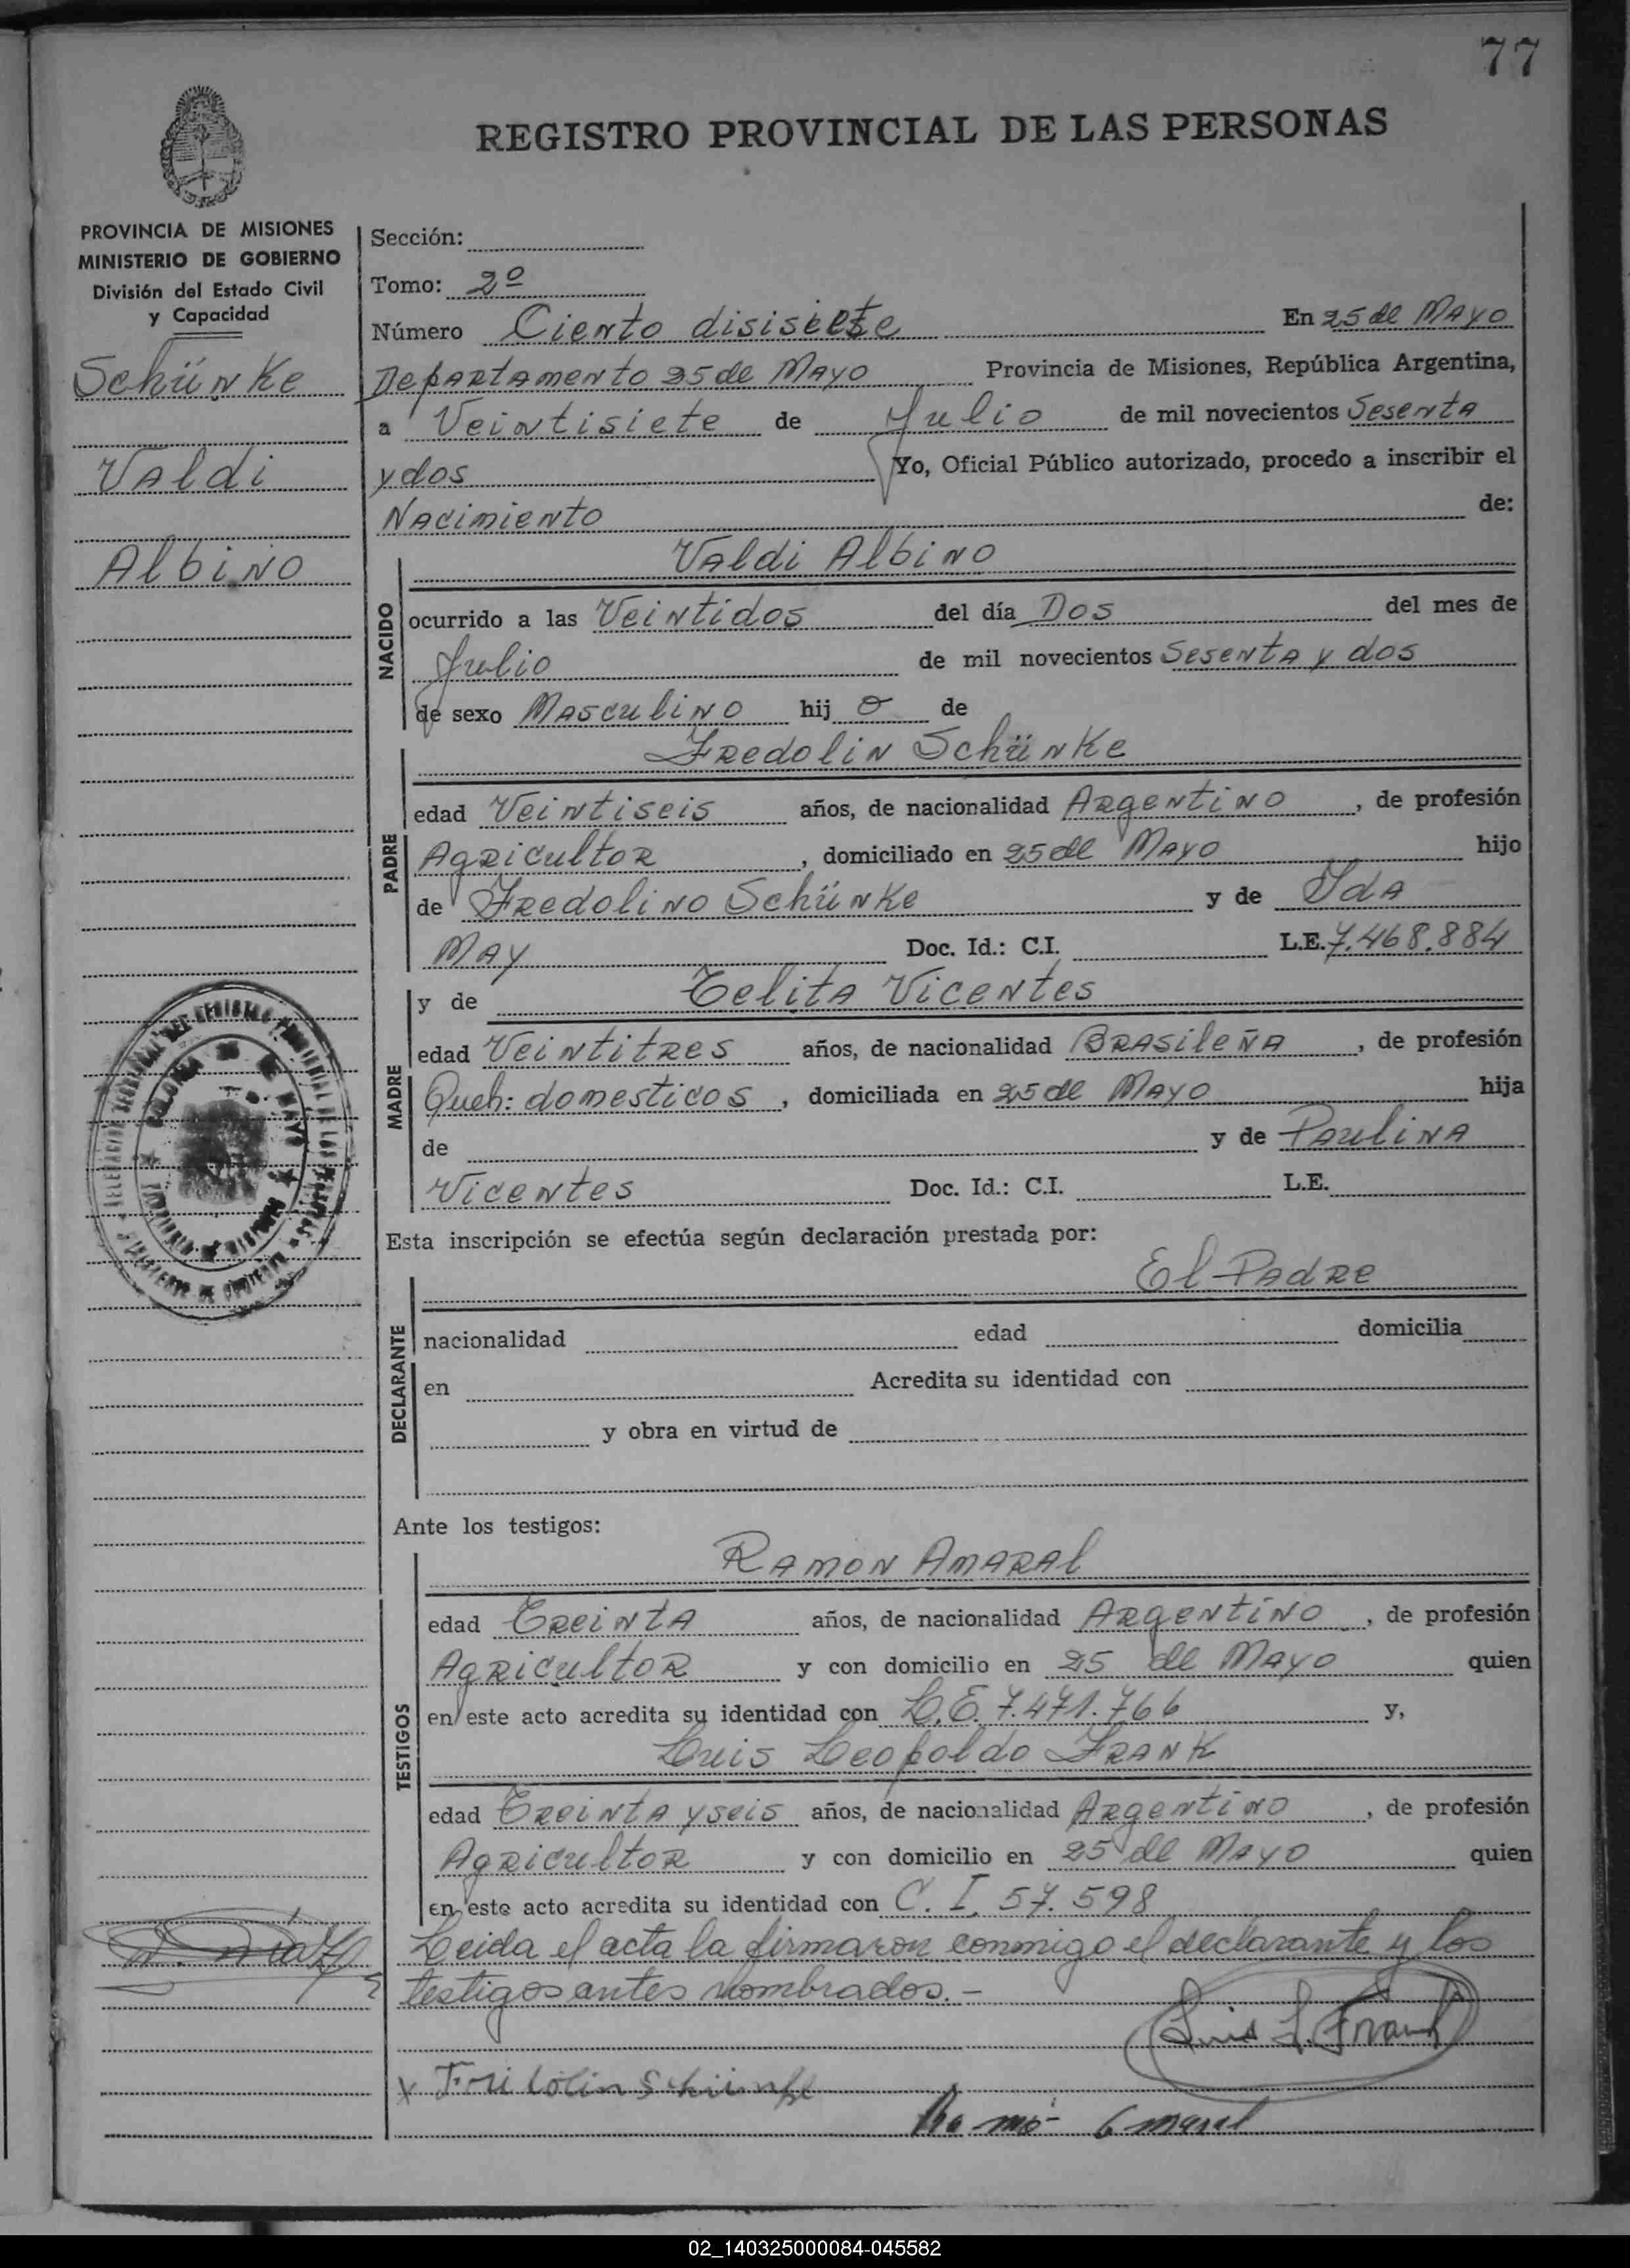 77
REGISTRO PROVINCIAL DE LAS PERSONAS
PROVINCIA DE MISIONES
MINISTERIO DE GOBIERNO
División del Estado Civil
y Capacidad
Schünke
Valdi
Albino
Sección:
Tomo: 2º
Número Ciento disisiete En 25 de Mayo
Departamento 25 de Mayo Provincia de Misiones, República Argentina,
a Veintisiete de Julio de mil novecientos Sesenta
y dos Yo, Oficial Público autorizado, procedo a inscribir el
Nacimiento de:
NACIDO
Valdi Albino
ocurrido a las Veintidos del día Dos del mes de
Julio de mil novecientos Sesenta y dos
de sexo Masculino hij o de
PADRE
Fredolin Schünke
edad Veintiseis años, de nacionalidad Argentino, de profesión
Agricultor, domiciliado en 25 de Mayo hijo
de Fredolino Schünke y de Ida
May Doc. Id.: C.I. L.E. 7.468.884
MADRE
y de Telita Vicentes
edad Veintitres años, de nacionalidad Brasileña, de profesión
Queh: domesticos, domiciliada en 25 de Mayo hija
de y de Paulina
Vicentes Doc. Id.: C.I. L.E.
Esta inscripción se efectúa según declaración prestada por:
DECLARANTE
El Padre
nacionalidad edad domicilia
en Acredita su identidad con
y obra en virtud de
Ante los testigos:
TESTIGOS
Ramon Amaral
edad Treinta años, de nacionalidad Argentino, de profesión
Agricultor y con domicilio en 25 de Mayo quien
en este acto acredita su identidad con L.E. 7.471.766 y,
Luis Leopoldo Frank
edad Treinta y seis años, de nacionalidad Argentino, de profesión
Agricultor y con domicilio en 25 de Mayo quien
en este acto acredita su identidad con C. I. 57.598
Leida el acta la firmaron conmigo el declarante y los
testigos antes nombrados.-
Luis L. Frank
x Fridolin Schünke
02_140325000084-045582